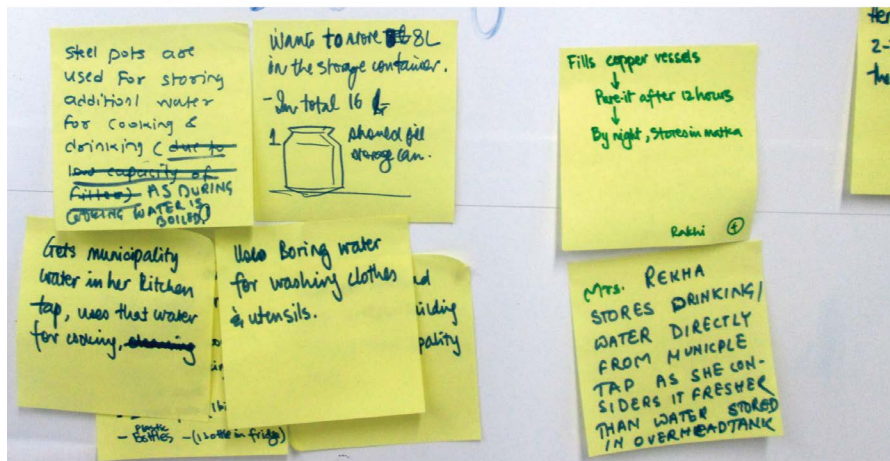 Steel pots are
used for storing
additionl water
for cooking &
drinking (due to
low capacity of
filter) AS DURING
COOKING WATER IS
BOILED
Wants to store 8L
in the storage container.
- In total 16 L
1
should fill
storage can.
Fills copper vessels
Pure-it after 12 hours
By night, stores in matka
Rakhi 4
Gets municipality
water in her kitchen
tap, uses that water
for cooking, cleaning
Uses Boring water
for washing clothes
& utensils.
ilding
pality
plastic
- Bottles - (1 bottle in fridge)
Mrs. REKHA
STORES DRINKING/
WATER DIRECTLY
FROM MUNICPLE
TAP AS SHE CON-
SIDERS IT FRESHER
THAN WATER STORED
IN OVERHEAD TANK
2-
the